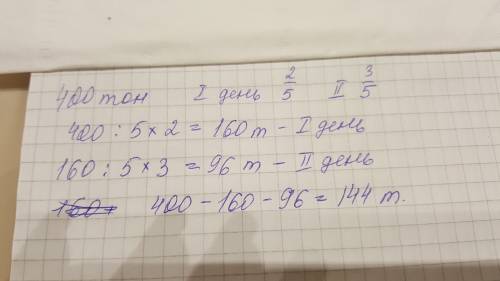 400 тон I день 2/5 II 3/5
400 : 5 × 2 = 160 т - I день
160 : 5 × 3 = 96 т - II день
400 - 160 - 96 = 144 т.